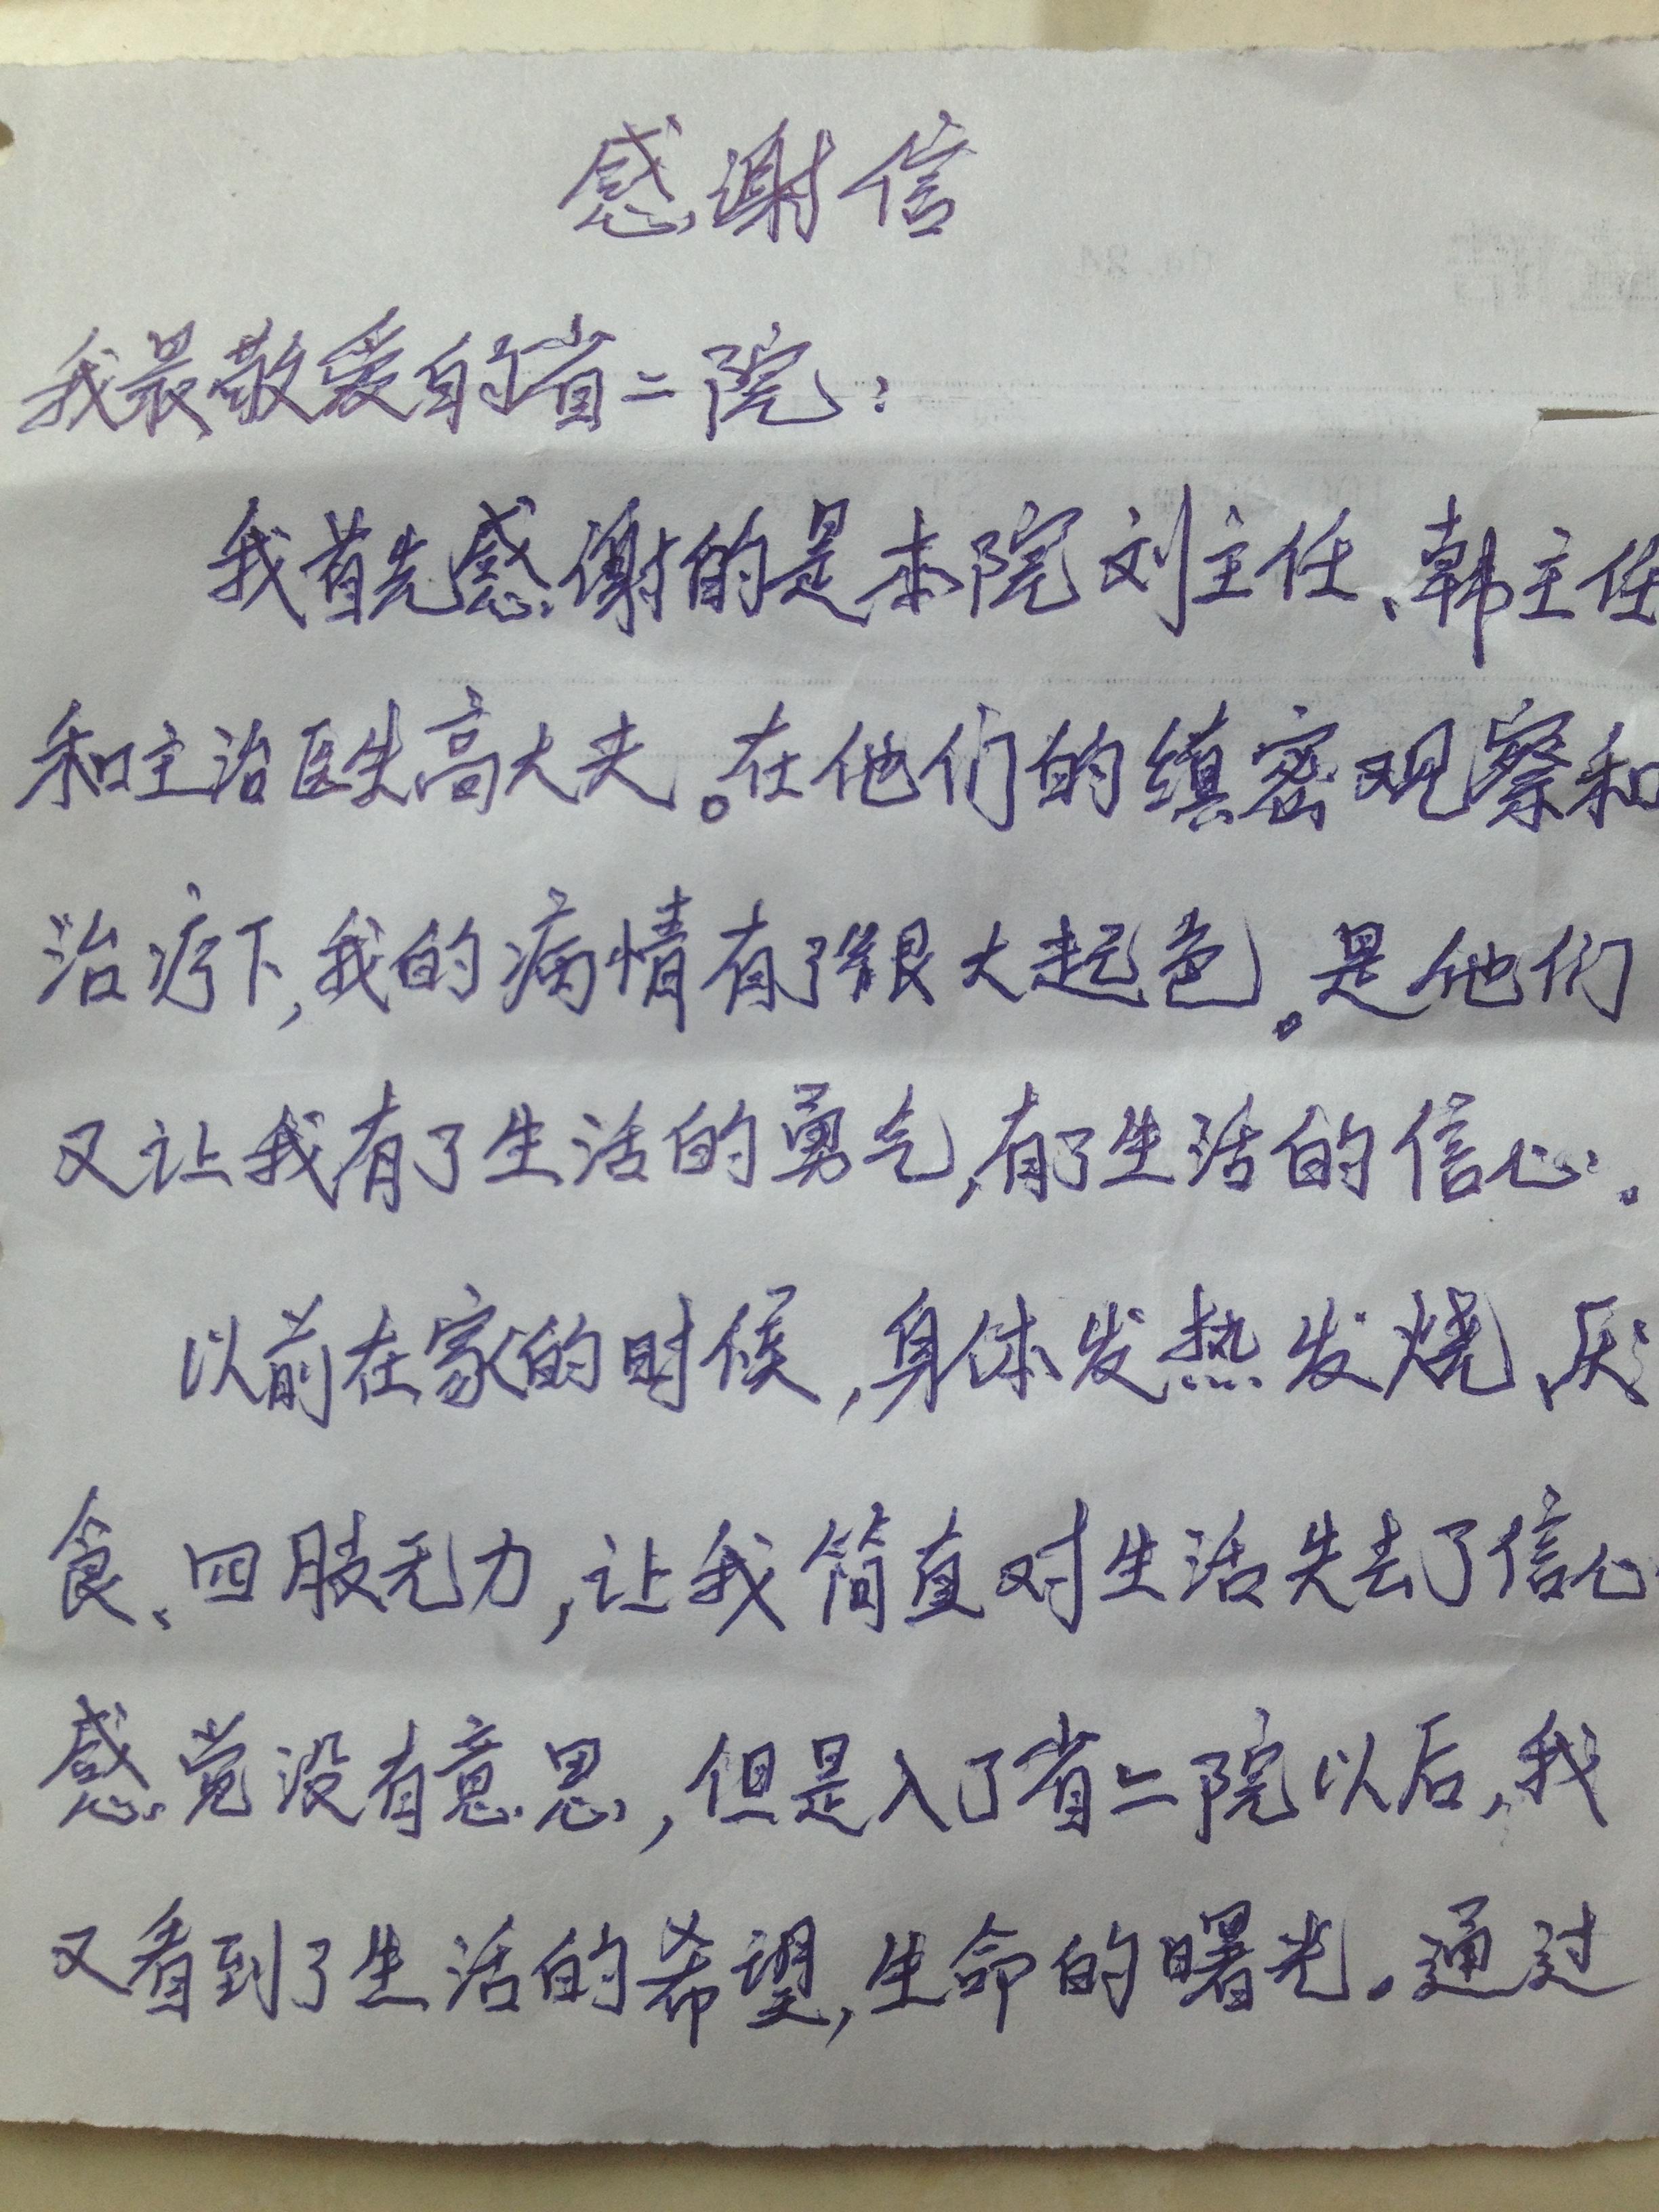 感谢信
我最敬爱的省二院：
我首先感谢的是本院刘主任、韩主任
和主治医生高大夫。在他们的缜密观察和
治疗下,我的病情有了很大起色。是他们
又让我有了生活的勇气,有了生活的信心。
以前在家的时候,身体发热发烧、厌
食、四肢无力,让我简直对生活失去了信心
感觉没有意思,但是入了省二院以后,我
又看到了生活的希望,生命的曙光。通过